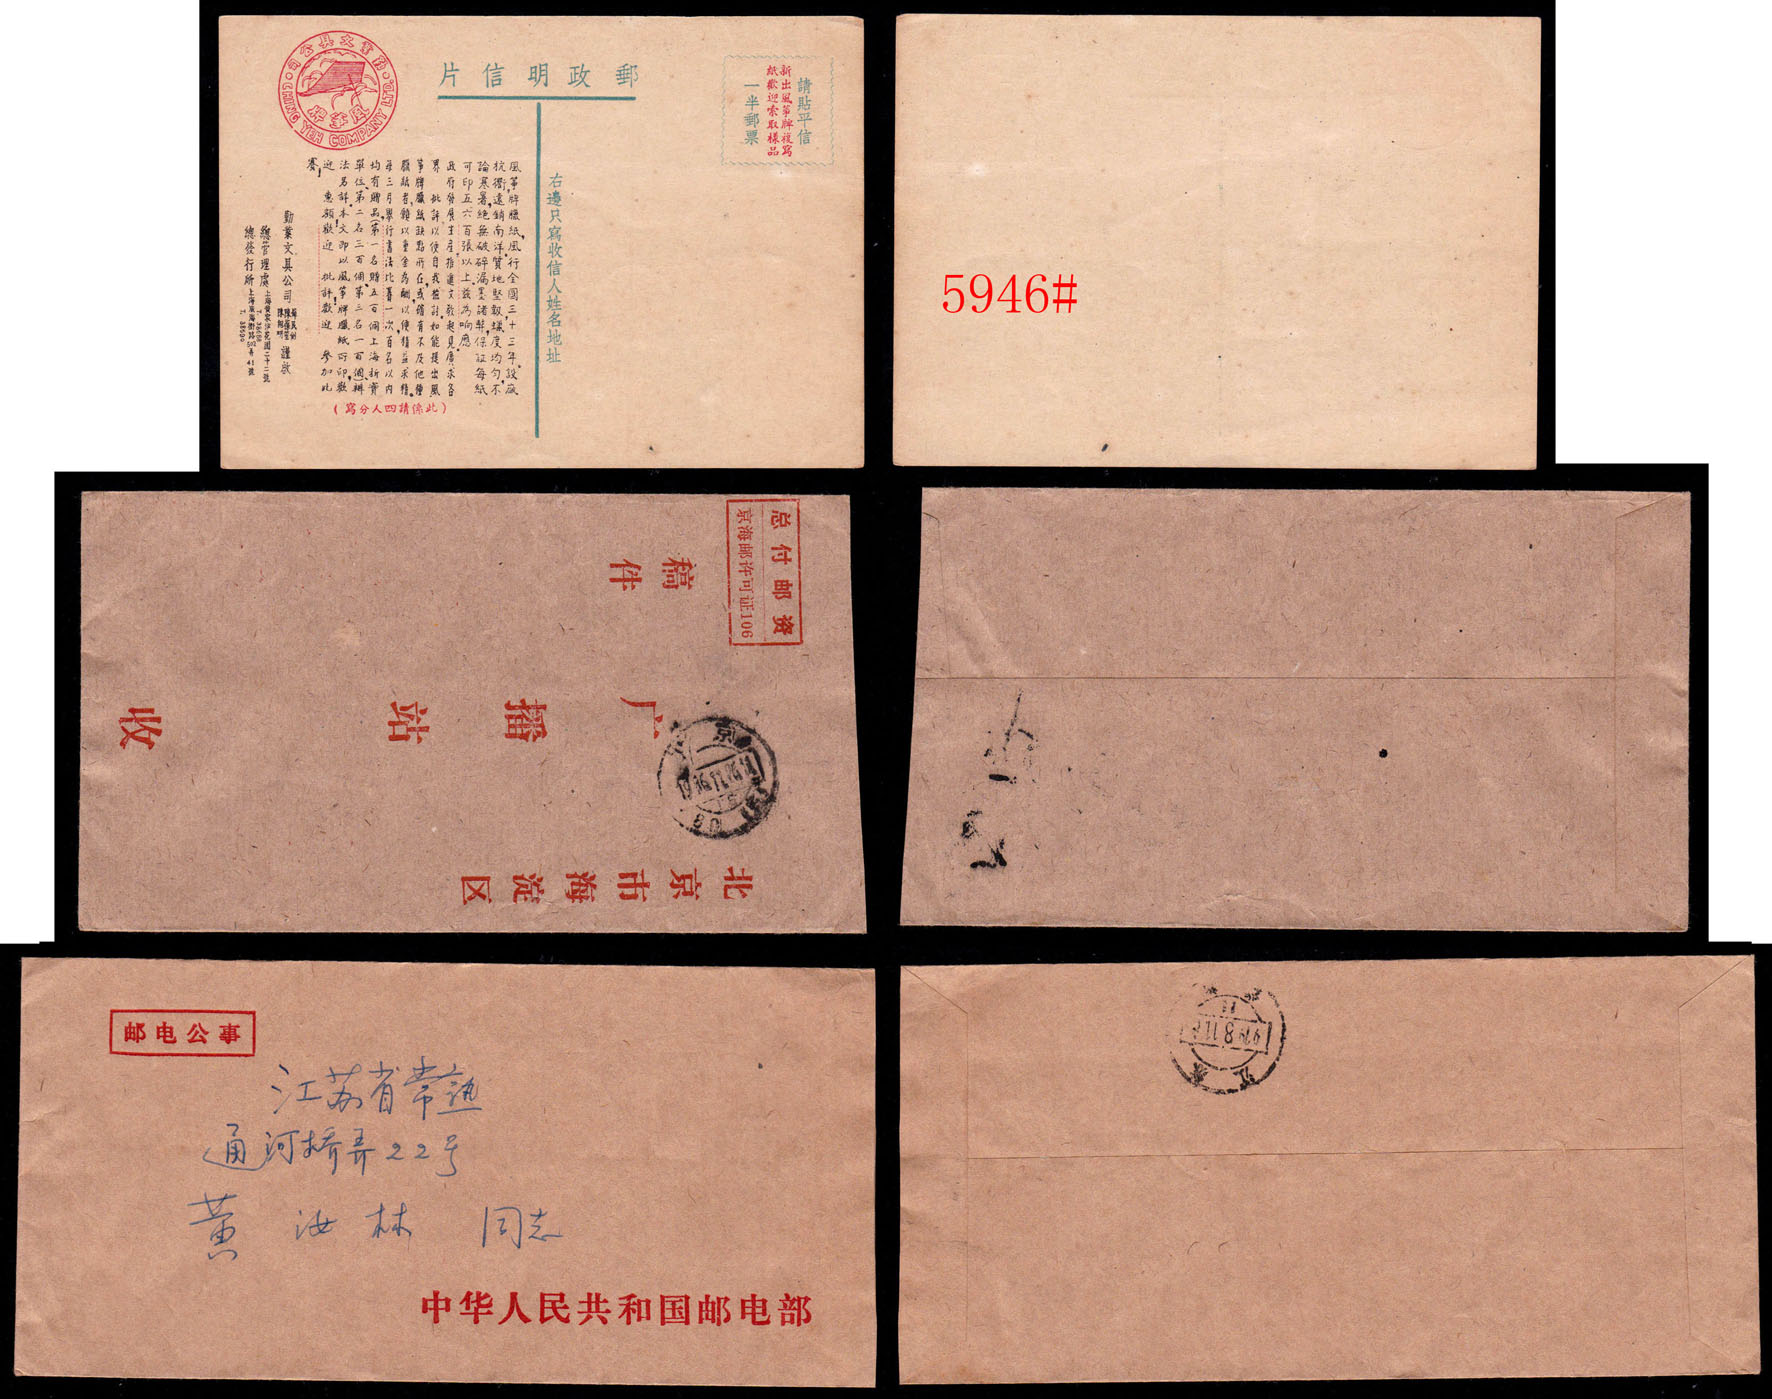 勤業文具公司
CHING YEH COMPANY LTD.
風箏牌
郵政明信片
請貼平信
新出風箏牌複寫
紙歡迎索取樣品
一半郵票
右邊只寫收信人姓名地址
風箏牌臘紙，風行全國三十三年，設廠
抗衡，遠銷南洋，質地堅韌，蠟度均勻，不
論寒暑，絕無破碎漏墨諸弊，保証每紙
可印五六百張以上，茲為响應
政府發展生產，推進文教起見，廣求各
界批評，以便自我檢討，如能提出風
箏牌臘紙缺點所在，或稽有不及他種
臘紙者，願以重金為酬，以便精益求精。
每三月舉行書法比賽一次，百名以內
均有贈品，（第一名贈五百個上海折實
單位，第二名三百個，第三名一百個，）辦
法另詳。本文即以風箏牌臘紙所印，歡
迎惠顧！歡迎批評！歡迎參加比
賽！
勤業文具公司 謹啟
總管理處
總發行所
（此係請四人分寫）
5946#
总付邮资
京海邮许可证106
稿件
广播站 收
北京市海淀区
北京
邮电公事
江苏省常熟
通河桥弄22号
黄汝林 同志
中华人民共和国邮电部
江苏